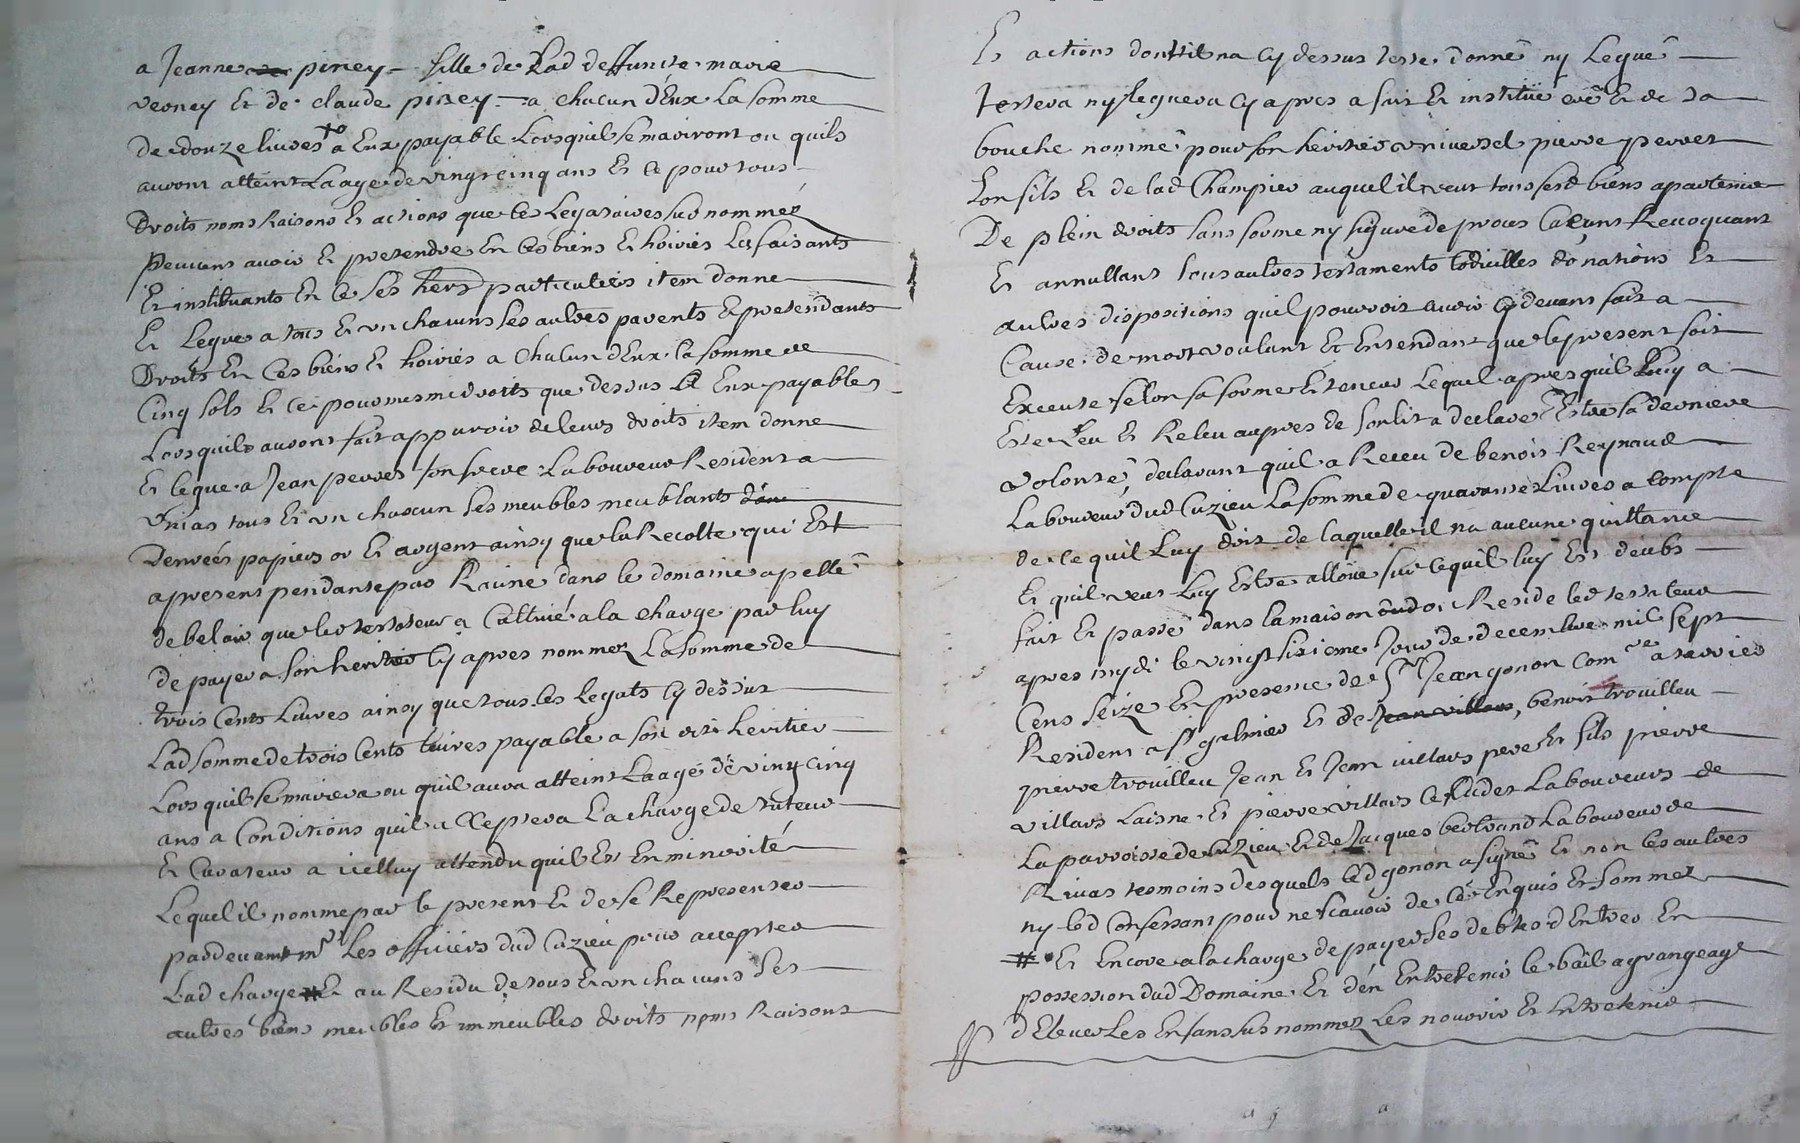 a Jeanne piney fille de Lad deffuncte marie
verney Et de claude piney a chacun dEux La somme
de douze livres a Eux payable Lorsquils se mariront ou quils
auront atteint Laage de vingt cinq ans Et ce pour tous
Droits noms Raisons Et actions que les Legataires sus nommez
peuvent avoir Et pretendre En ces biens Et hoiries Les faisants
Et instituants En ce ses hers particuliers item donne
Et Legue a tous Et un chacuns ses aultres parents Et pretendants
Droits En Ces biens Et hoiries a Chacun dEux la somme de
Cinq sols Et Ce pour mesme droits que dessus Et Eux payables
Lors quils auront fait apparoir de leurs droits item donne
Et legue a Jean perret son frere Laboureur Resident a
Unias tous Et un chascun ses meubles meublants
Denrées papiers or Et argent ainsy que la Recolte qui Est
apresent pendante par Racine dans le domaine apellé
de belair que led testateur a Cultivé a la charge par luy
de payer a son heritier Cy apres nommez La somme de
trois Cents Livres ainsy que tous les Legats Cy dessus
Lad somme de trois Cents livres payable a son dit heritier
Lors quil se mariera ou quil aura atteint Laage de ving cinq
ans a Conditions quil acceptera La charge de tuteur
Et Curateur a icelluy attendu quil Est En minorité
Lequel il nomme par le present Et de se Representer
pardevant mrs Les officiers dud Cuzieu pour accepter
Lad charge # Et au Residu de tous Et un chacuns ses
aultres biens meubles Et immeubles droits noms Raisons
Et actions dont il na Cy dessus teste donné ny Legué
testera ny leguera Cy apres a fait Et institué Et de sa
bouche nommé pour son heritier universel pierre perret
son fils Et de lad Champier auquel il veut tous sesd biens apartenir
De plein droits sans forme ny figure de proces Revoquant
Et annullant tous aultres testaments Codicilles donations Et
aultres dispositions quil pourroit avoir Cy devant fait a
Cause de mort voulant Et Entendant que le present soit
Execute selon sa forme Et teneur Lequel apres quil Luy a
Este Leu Et Releu aupres de son lit a declare Estre sa derniere
volonté, declarant quil a Receu de benoit Reynaud
Laboureur dud Cuzieu La somme de quarante Livres a Compte
de Ce quil Luy doit de laquelle il na aucune quittance
Et quil veut Luy Estre alloüe sur Ce quil luy Est deubs
fait Et passé dans la maison Reside led testateur
apres mydi le vingt sixieme Jour de decembre mil sept
Cens seize En presence de Sr Jean gonon Comre a terrier
Resident a St galmier Et de Jean villars, benoit trouilleu
pierre trouilleu Jean Et Jean villars pere Et fils pierre
villars Laisne Et pierre villars Le Cadet Laboureurs de
La parroisse de Cuzieu Et de Jacques bertrand Laboureur de
Rivas tesmoins desquels led gonon a signé Et non les aultres
ny led Confessant pour ne scavoir de Ce Enquis Et sommez
# Et Encore a la charge de payer ses debtes dEntrer En
possession dud Domaine Et dén Entretenir le bail a grangeage
dElever Les Enfans sus nommez Les nourrir Et Entretenir